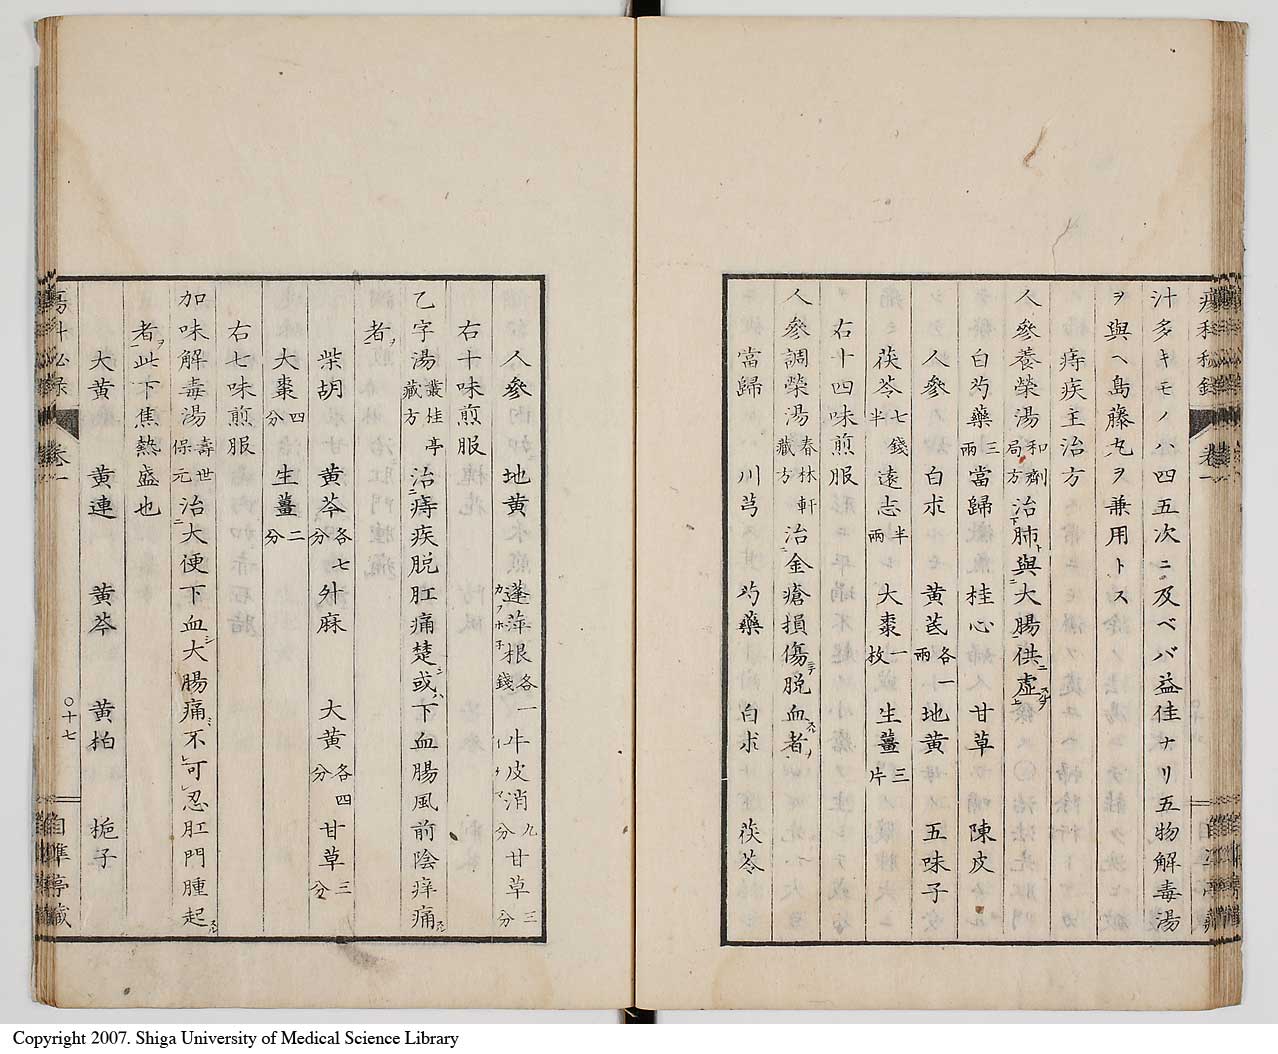 瘍科秘録 卷一
汁多キモノハ四五次ニ及ベバ益佳ナリ五物解毒湯
ヲ與ヘ島藤丸ヲ兼用トス
痔疾主治方
人參養榮湯 和劑局方 治下肺與ト大腸一供ニ虛スル上ヿヲ
白芍藥 三兩 當歸 桂心 甘草 陳皮
人參 白朮 黃芪 各一兩 地黃 五味子
茯苓 七錢半 遠志 半兩 大棗 一枚 生薑 三片
右十四味煎服
人參調榮湯 春林軒藏方 治ニ金瘡損傷シテ脫血スル者ヲ
當歸 川芎 芍藥 白朮 茯苓
人參 地黃 蓬萍根 各一錢 カフホ子 牛皮消 九分 イケマ 甘草 三分
右十味煎服
乙字湯 叢桂亭藏方 治ニ痔疾脫肛痛楚シ或ハ下血腸風前陰痒痛スル
者ヲ
柴胡 黃芩 各七分 升麻 大黃 各四分 甘草 三分
大棗 四分 生薑 二分
右七味煎服
加味解毒湯 壽世保元 治ニ大便下血シ大腸痛ミ不可忍肛門腫起スル
者ヲ一此下焦熱盛也
大黃 黃連 黃芩 黃柏 梔子
瘍科秘录 卷一 〇十七 自準亭藏
Copyright 2007. Shiga University of Medical Science Library